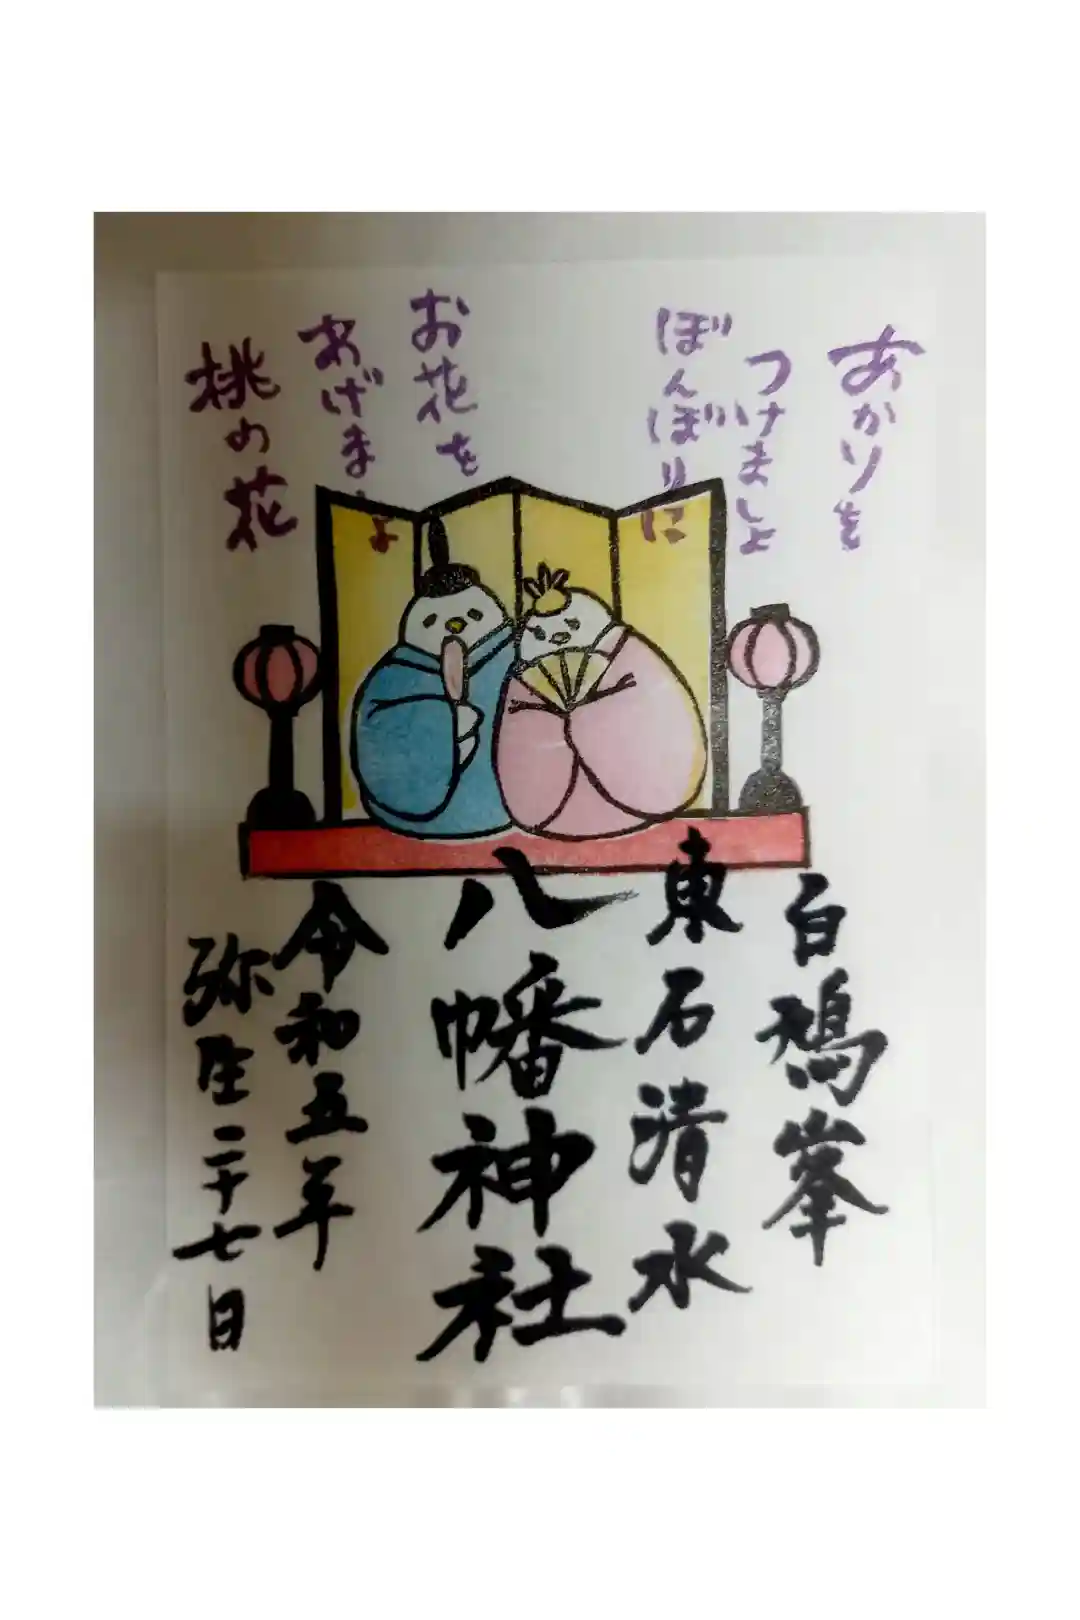 あかりを
つけましょ
ぼんぼりに
お花を
あげましょ
桃の花
白鳩峯
東石清水
八幡神社
令和五年
弥生二十七日